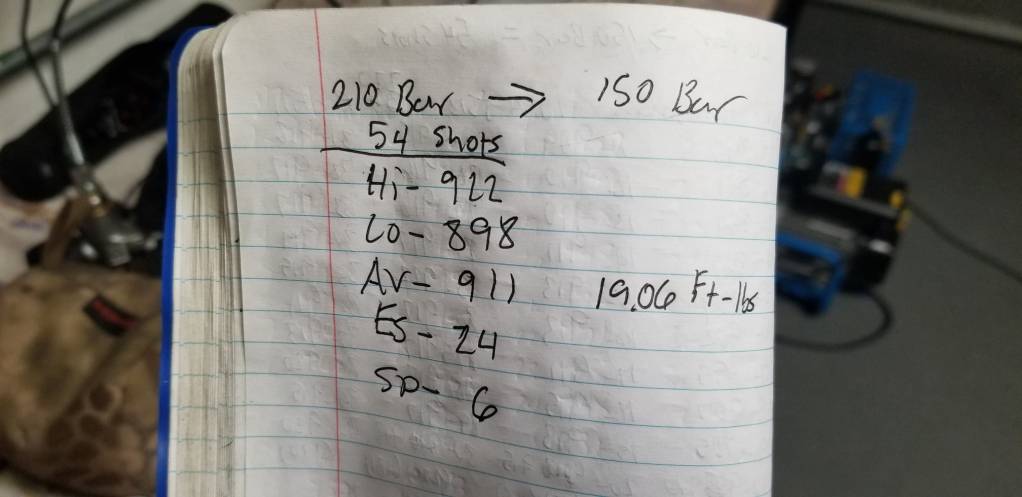 210 Bar → 150 Bar
54 Shots
Hi- 922
Lo- 898
AV- 911 19.06 Ft-lbs
ES- 24
SD- 6